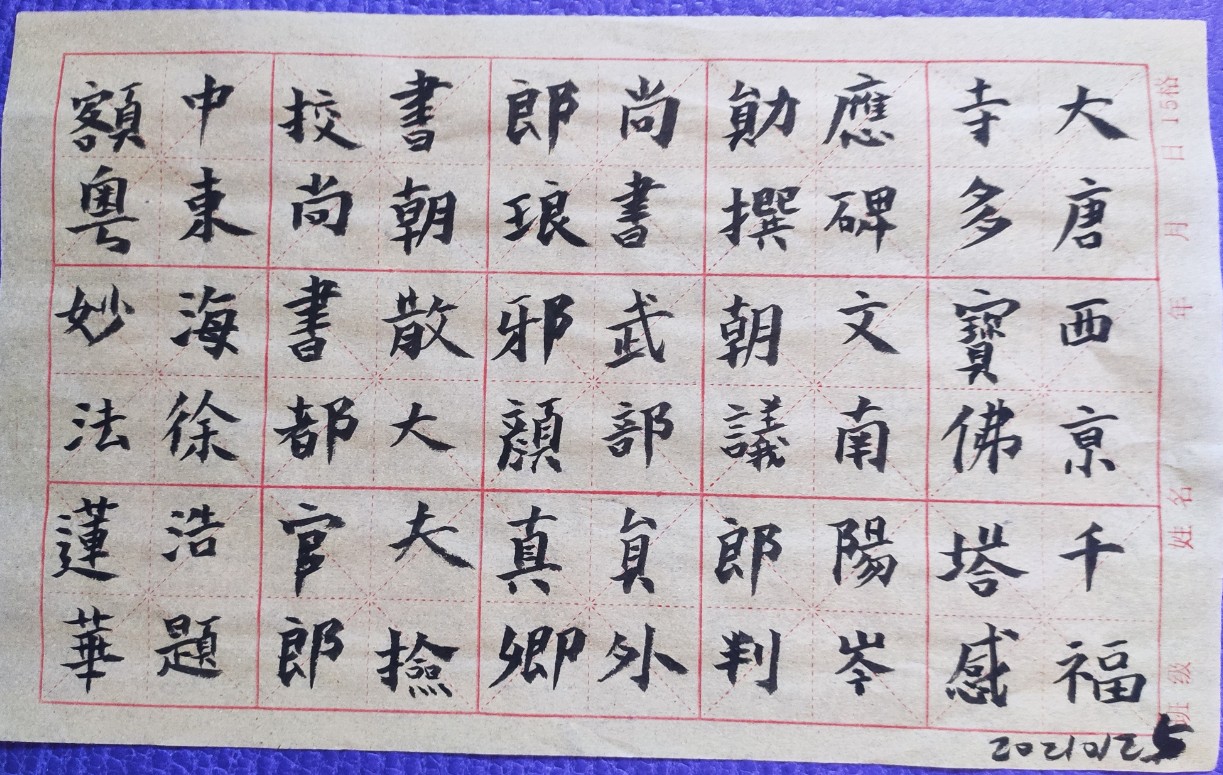 大唐西京千福
寺多寶佛塔感
應碑文南陽岑
勛撰朝議郎判
尚書武部貟外
郎琅邪顏真卿
書朝散大夫撿
挍尚書都官郎
中東海徐浩題
額粵妙法蓮華
15格
班级 姓名 年 月 日
20210125